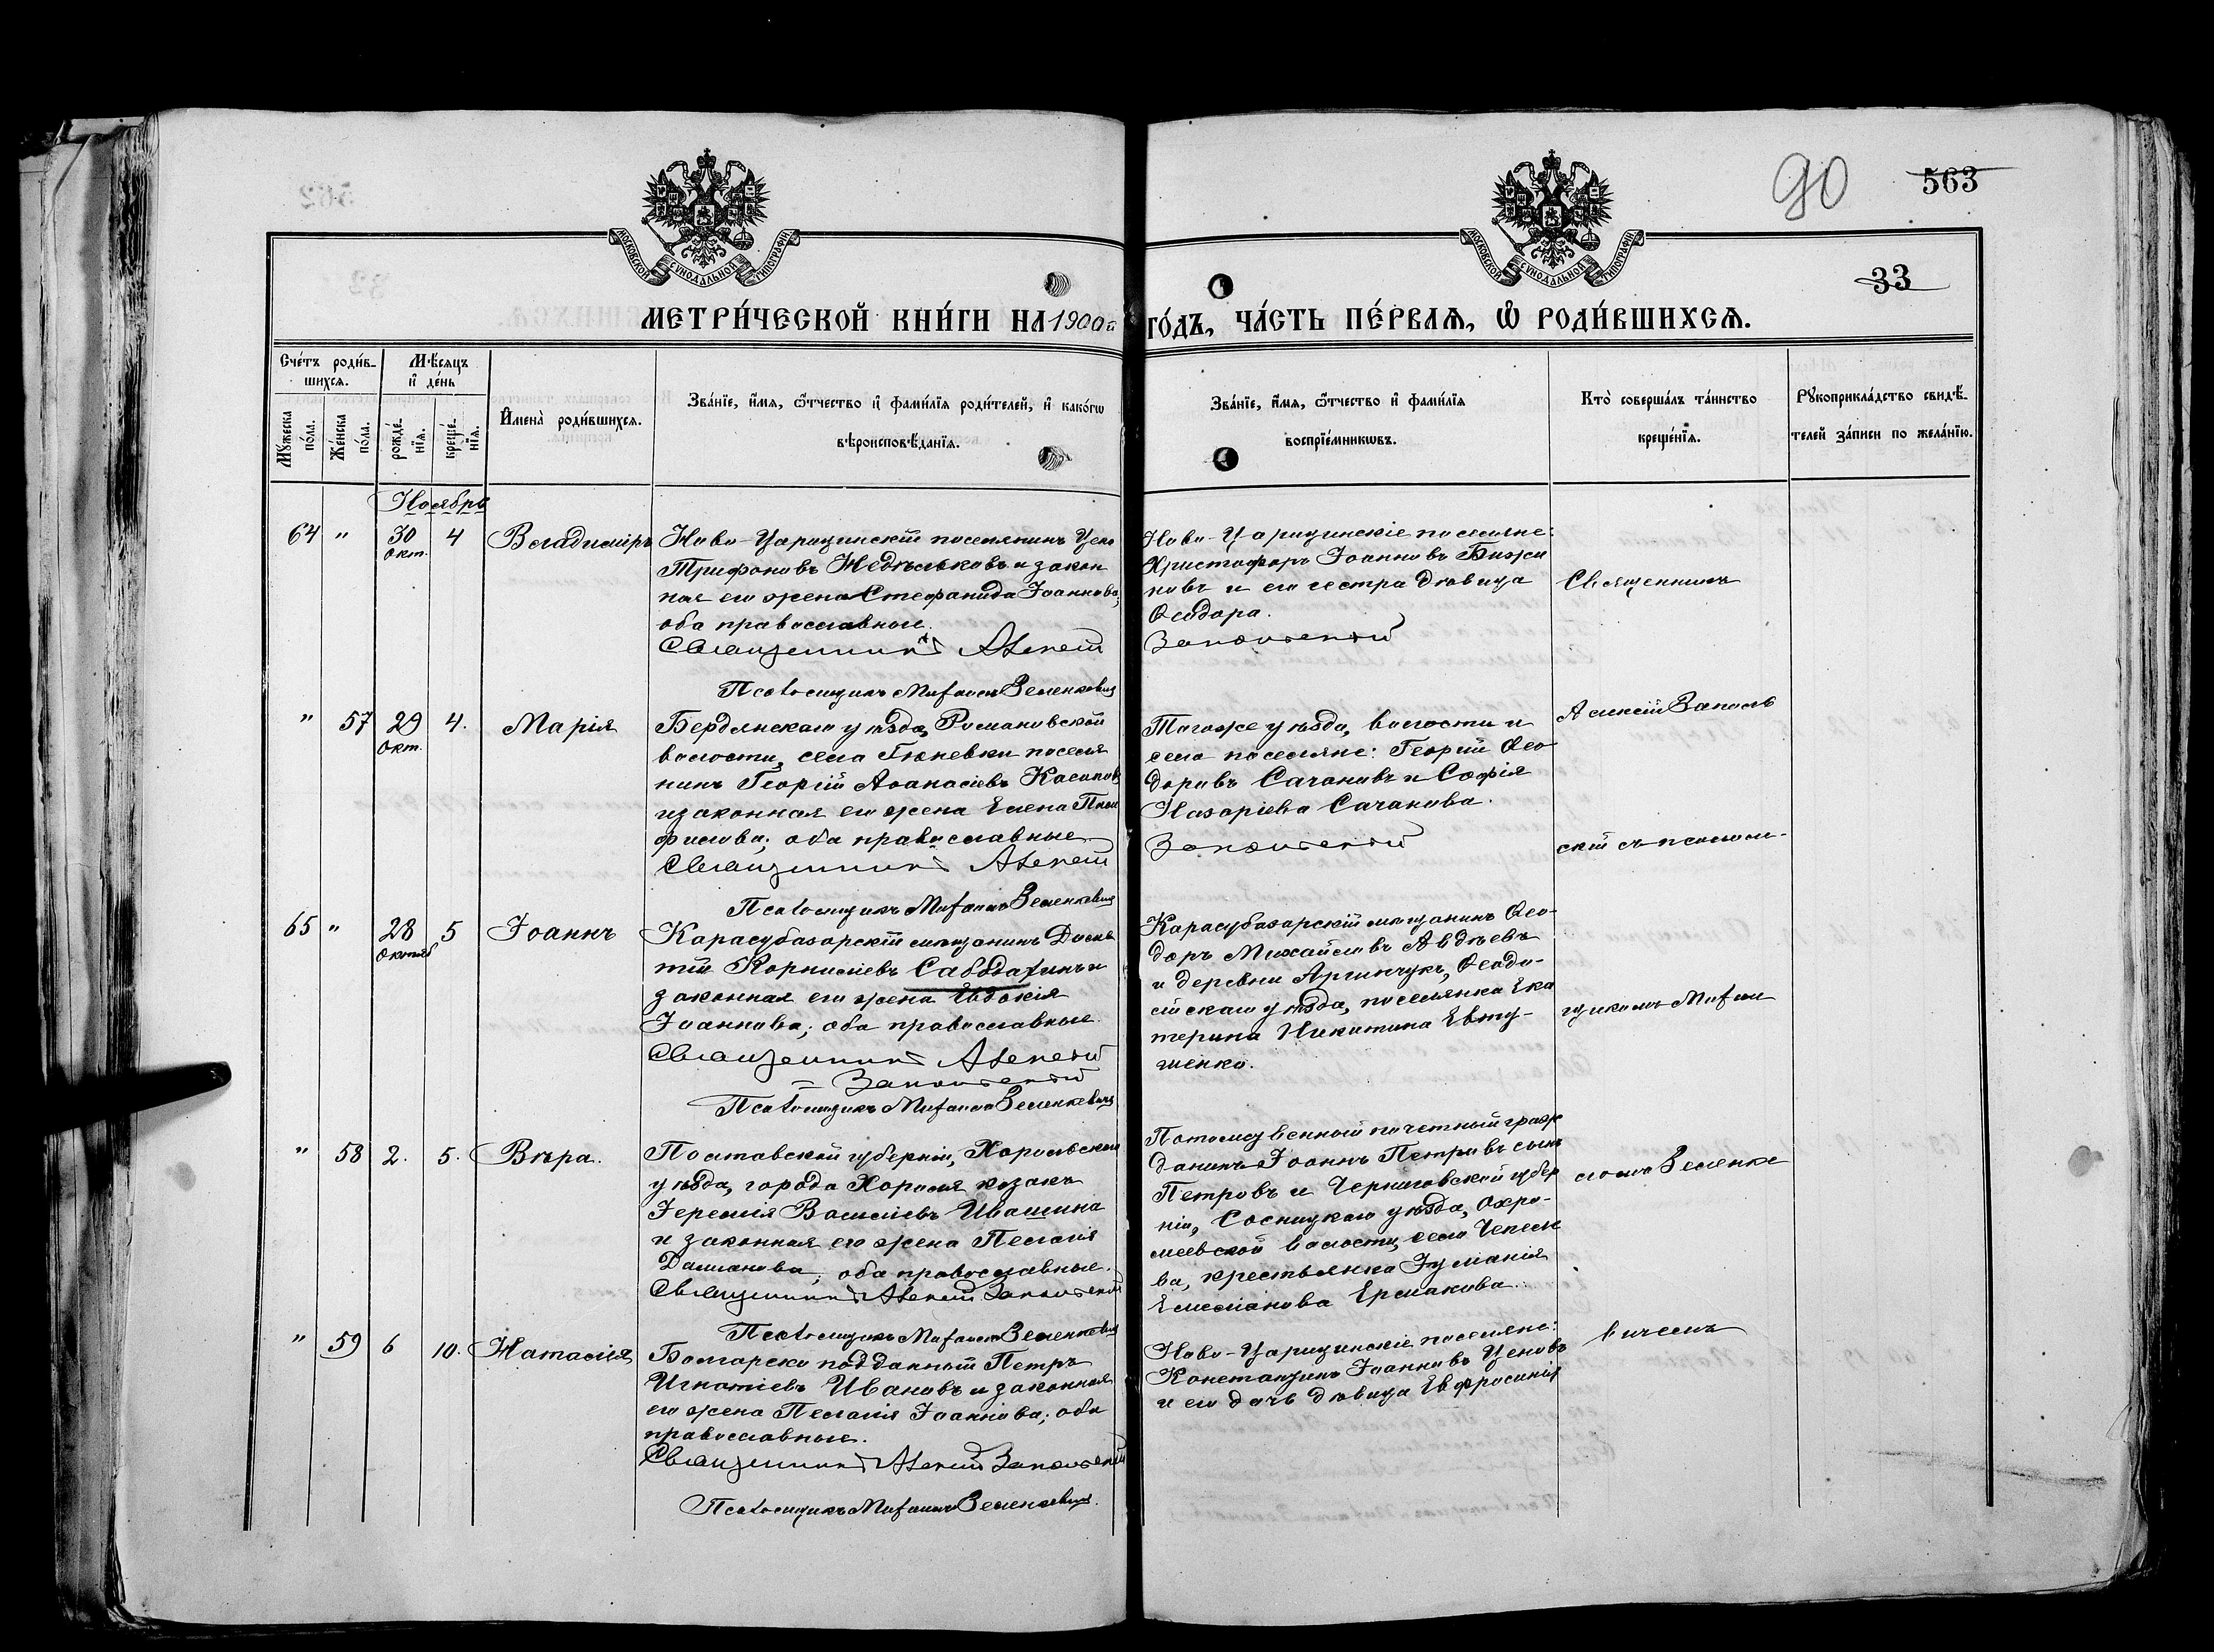 90
563
33
МОСКОВСКОЙ СУНОДАЛЬНОЙ ТИПОГРАФІИ
МОСКОВСКОЙ СУНОДАЛЬНОЙ ТИПОГРАФІИ
МЕТРИ́ЧЕСКОЙ КНИ́ГИ НА 1900 г
ГО́ДЪ, ЧА́СТЬ ПЕ́РВАѦ, Ѡ РОДИ́ВШИХСѦ.
Сче́тъ роди́в-
шихсѧ.
Мꙋжеска по́ла.
Же́нска по́ла.
Мѣ́сѧцъ
и҆ де́нь
рожде́нїѧ.
креще́нїѧ.
И҆мена̀ роди́вшихсѧ.
Зва́нїе, и҆́мѧ, ѻ҆́тчество и҆ фами́лїѧ роди́телей, и҆ како́гѡ
вѣроисповѣ́данїѧ.
Зва́нїе, и҆́мѧ, ѻ҆́тчество и҆ фами́лїѧ
воспрїе́мникѡвъ.
Кто̀ соверша́лъ та́инство
креще́нїѧ.
Рꙋкоприкла́дство свидѣ́-
телей за́писи по жела́нїю.
Ноябрь
64 " 30 Окт. 4 Владиміръ
Ново-Царицинскій поселянинъ Цено
Трифоновъ Недѣльковъ и закон
ная его жена Стефанида Іоаннова;
оба православные.
Священникъ Алексій
Псаломщикъ Митрофанъ Зеленкевичъ
Ново-Царицинскіе поселяне:
Христофоръ Іоанновъ Бижи
новъ и его сестра дѣвица
Ѳеодора.
Запольскій
Священникъ
" 57 29 Окт. 4. Марія
Бердянскаго уѣзда, Романовской
волости, села Гюневки поселя
нинъ Георгій Аѳанасіевъ Касапов
и законная его жена Елена Пам
филова; оба православные
Священникъ Алексій
Псаломщикъ Зеленкевичъ
Тогоже уѣзда, волости и
села поселяне: Георгій Ѳео
доровъ Сачановъ и Софія
Назаріева Сачанова.
Запольскій
Алексій Заполь
скій съ псалом-
65 " 28 Октяб 5 Іоаннъ
Карасубазарскій мѣщанинъ
Корниліевъ и
законная его жена Евдокія
Іоаннова; оба православные.
Священникъ Алексій
Запольскій
Псаломщикъ Зеленкевичъ
Карасубазарскій мѣщанинъ Ѳео-
доръ Михайловъ Авдѣевъ
и деревни Аргинчукъ, Ѳеодо-
сійскаго уѣзда, поселянка Ека
терина Никитина Евту-
шенко.
щикомъ
" 58 2. 5. Вѣра.
Полтавской губерніи, Хорольскаго
уѣзда, города Хороля козакъ
Іеремія Василіевъ Ивашина
и законная его жена Пелагія
Даміанова; оба православные.
Священникъ Алексій Запольскій
Псаломщикъ Зеленкевичъ
Потомственный почетный граж
данинъ Іоаннъ Петровъ сынъ
Петровъ и Черниговской губер
ніи, Сосницкаго уѣзда, Охра-
меевской волости, села Чепеле
ва, крестьянка Іуліанія
Емеліанова Ермакова.
Зеленке
" 59 6 10. Наталія
Болгарско подданный Петръ
Игнатіевъ Ивановъ и законная
его жена Пелагія Іоаннова; оба
православные.
Священникъ Алексій Запольскій
Псаломщикъ Зеленкевичъ.
Ново-Царицинскіе поселяне:
Константинъ Іоанновъ Ценовъ
и его дочь дѣвица Евфросинія
вичемъ